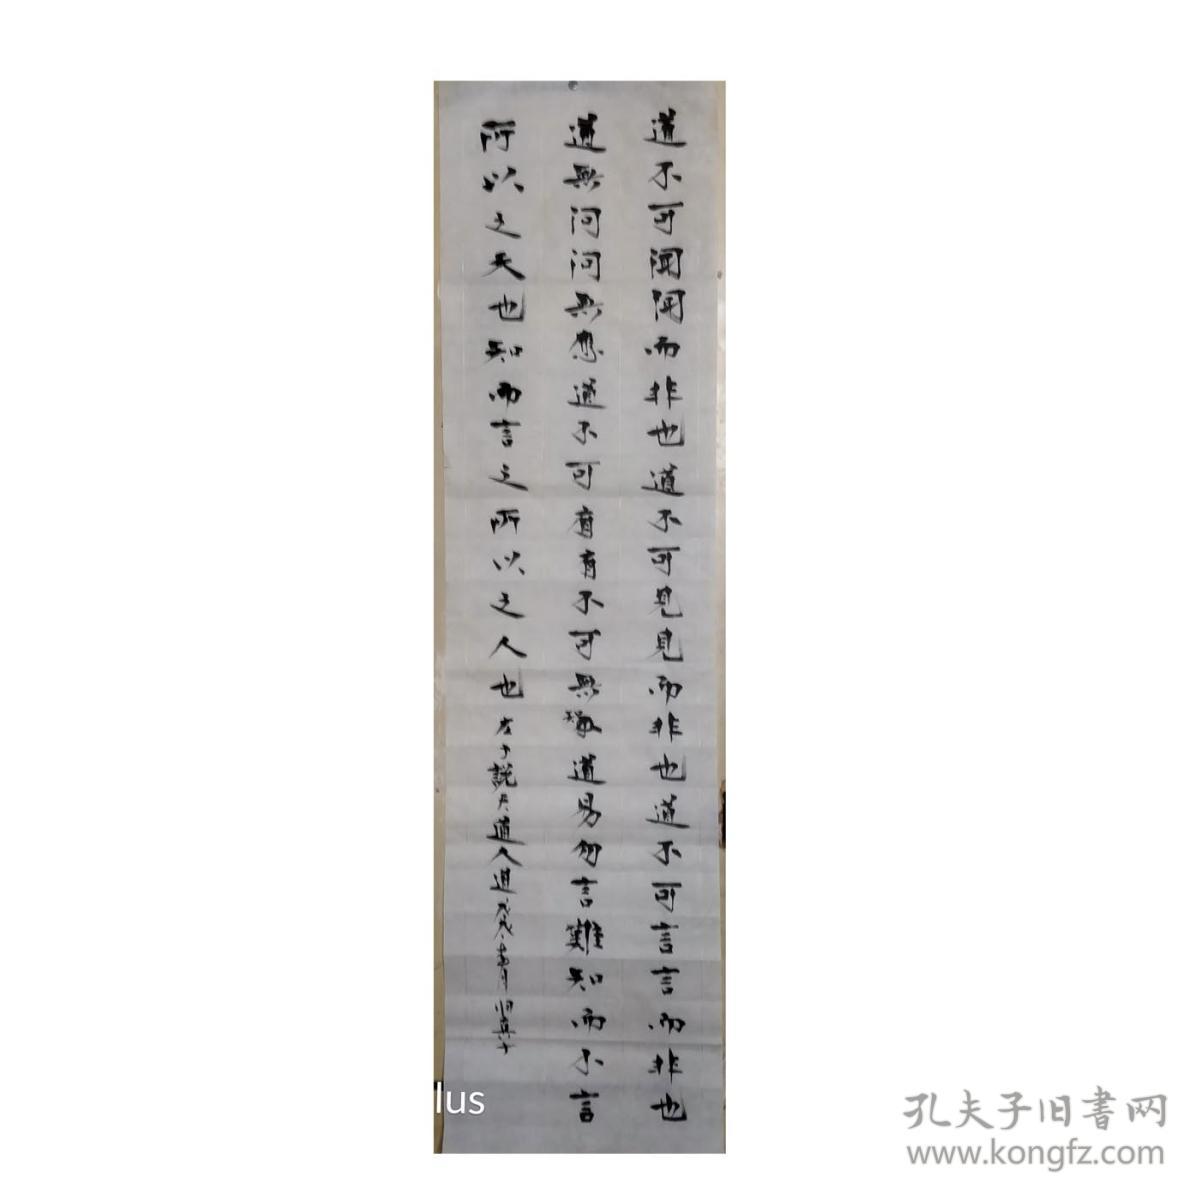 道不可聞聞而非也道不可見見而非也道不可言言而非也
道無问问無應道不可有有不可無知道易勿言難知而不言
所以之天也知而言之所以之人也 庄子說天道人道 戊戌
lus
孔夫子旧書网
www.kongfz.com